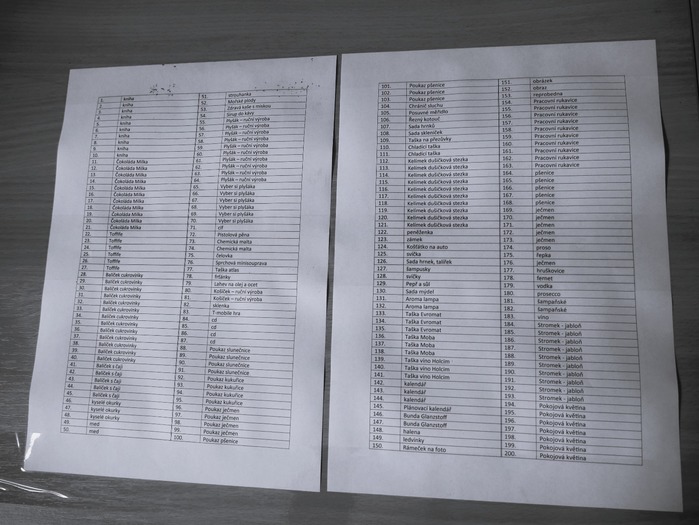 1. kniha 51. strouhanka
2. kniha 52. Mořské plody
3. kniha 53. Zdravá kaše s miskou
4. kniha 54. Sirup do kávy
5. kniha 55. Plyšák – ruční výroba
6. kniha 56. Plyšák – ruční výroba
7. kniha 57. Plyšák – ruční výroba
8. kniha 58. Plyšák – ruční výroba
9. kniha 59. Plyšák – ruční výroba
10. kniha 60. Plyšák – ruční výroba
11. Čokoláda Milka 61. Plyšák – ruční výroba
12. Čokoláda Milka 62. Plyšák – ruční výroba
13. Čokoláda Milka 63. Plyšák – ruční výroba
14. Čokoláda Milka 64. Plyšák – ruční výroba
15. Čokoláda Milka 65. Vyber si plyšáka
16. Čokoláda Milka 66. Vyber si plyšáka
17. Čokoláda Milka 67. Vyber si plyšáka
18. Čokoláda Milka 68. Vyber si plyšáka
19. Čokoláda Milka 69. Vyber si plyšáka
20. Čokoláda Milka 70. Vyber si plyšáka
21. Čokoláda Milka 71. cif
22. Toffife 72. Pistolová pěna
23. Toffife 73. Chemická malta
24. Toffife 74. Chemická malta
25. Toffife 75. čelovka
26. Toffife 76. Sprchová minisouprava
27. Toffife 77. Taška atlas
28. Balíček cukrovinky 78. frťánky
29. Balíček cukrovinky 79. Lahev na olej a ocet
30. Balíček cukrovinky 80. Košíček – ruční výroba
31. Balíček cukrovinky 81. Košíček – ruční výroba
32. Balíček cukrovinky 82. sklenka
33. Balíček cukrovinky 83. T-mobile hra
34. Balíček cukrovinky 84. cd
35. Balíček cukrovinky 85. cd
36. Balíček cukrovinky 86. cd
37. Balíček cukrovinky 87. cd
38. Balíček cukrovinky 88. Poukaz slunečnice
39. Balíček cukrovinky 89. Poukaz slunečnice
40. Balíček cukrovinky 90. Poukaz slunečnice
41. Balíček s čaji 91. Poukaz slunečnice
42. Balíček s čaji 92. Poukaz kukuřice
43. Balíček s čaji 93. Poukaz kukuřice
44. Balíček s čaji 94. Poukaz kukuřice
45. Balíček s čaji 95. Poukaz kukuřice
46. kyselé okurky 96. Poukaz ječmen
47. kyselé okurky 97. Poukaz ječmen
48. kyselé okurky 98. Poukaz ječmen
49. med 99. Poukaz ječmen
50. med 100. Poukaz pšenice
101. Poukaz pšenice 151. obrázek
102. Poukaz pšenice 152. obraz
103. Poukaz pšenice 153. reprobedna
104. Chránič sluchu 154. Pracovní rukavice
105. Posuvné měřidlo 155. Pracovní rukavice
106. Řezný kotouč 156. Pracovní rukavice
107. Sada hrnků 157. Pracovní rukavice
108. Sada skleniček 158. Pracovní rukavice
109. Taška na přezůvky 159. Pracovní rukavice
110. Chladící taška 160. Pracovní rukavice
111. Chladící taška 161. Pracovní rukavice
112. Kelímek dušičková stezka 162. Pracovní rukavice
113. Kelímek dušičková stezka 163. Pracovní rukavice
114. Kelímek dušičková stezka 164. pšenice
115. Kelímek dušičková stezka 165. pšenice
116. Kelímek dušičková stezka 166. pšenice
117. Kelímek dušičková stezka 167. pšenice
118. Kelímek dušičková stezka 168. pšenice
119. Kelímek dušičková stezka 169. ječmen
120. Kelímek dušičková stezka 170. ječmen
121. Kelímek dušičková stezka 171. ječmen
122. peněženka 172. ječmen
123. zámek 173. ječmen
124. Košťátko na auto 174. proso
125. svíčka 175. řepka
126. Sada hrnek, talířek 176. ječmen
127. šampusky 177. hruškovice
128. svíčky 178. fernet
129. Pepř a sůl 179. vodka
130. Sada mýdel 180. prosecco
131. Aroma lampa 181. šampaňské
132. Aroma lampa 182. šampaňské
133. Taška Evromat 183. víno
134. Taška Evromat 184. Stromek - jabloň
135. Taška Evromat 185. Stromek - jabloň
136. Taška Moba 186. Stromek - jabloň
137. Taška Moba 187. Stromek - jabloň
138. Taška Moba 188. Stromek - jabloň
139. Taška víno Holcim 189. Stromek - jabloň
140. Taška víno Holcim 190. Stromek - jabloň
141. Taška víno Holcim 191. Stromek - jabloň
142. kalendář 192. Stromek - jabloň
143. kalendář 193. Stromek - jabloň
144. kalendář 194. Pokojová květina
145. Plánovací kalendář 195. Pokojová květina
146. Bunda Glanzstoff 196. Pokojová květina
147. Bunda Glanzstoff 197. Pokojová květina
148. halena 198. Pokojová květina
149. ledvinky 199. Pokojová květina
150. Rámeček na foto 200. Pokojová květina